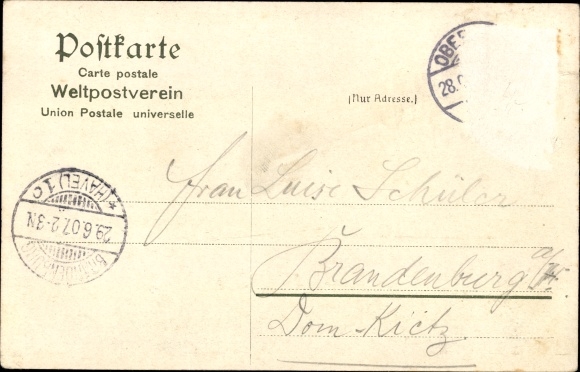 Poſtkarte
Carte postale
Weltpostverein
Union Postale universelle
(Nur Adresse.)
OBER
28.
(HAVEL) 1c
29.6.07.2-3N.
BRANDENBURG
Frau Luise Schüler
Brandenburg a/H.
Dom-Kietz